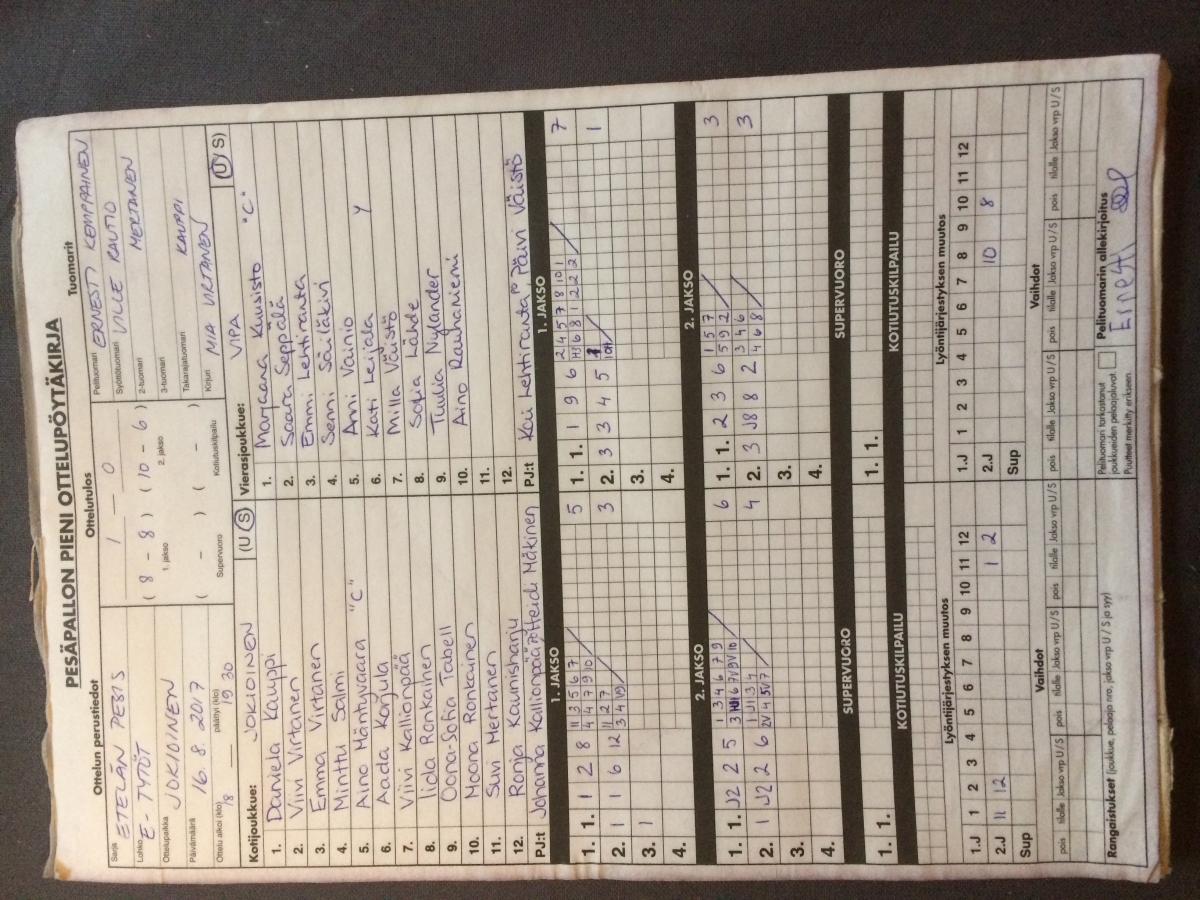 PESÄPALLON PIENI OTTELUPÖYTÄKIRJA
Ottelun perustiedot
Ottelutulos
Tuomarit
Sarja ETELÄN PESIS
Lohko E-TYTÖT
Ottelupaikka JOKIOINEN
Päivämäärä 16.8.2017
Ottelu alkoi (klo) 18 päättyi (klo) 19 30
1 - 0
( 8 - 8 ) ( 10 - 6 )
1. jakso 2. jakso
( - ) ( - )
Supervuoro Kotiutuskilpailu
Pelituomari ERNESTI KEMPPAINEN
Syöttötuomari VILLE RAUTIO
2-tuomari MERTANEN
3-tuomari
Takarajatuomari KAUPPI
Kirjuri MIA VIRTANEN
Kotijoukkue: JOKIOINEN (U / S)
1. Daniela Kauppi
2. Viivi Virtanen
3. Emma Virtanen
4. Minttu Salmi
5. Aino Mäntyvaara "C"
6. Aada Korjula
7. Viivi Kallionpää
8. Iida Ronkainen
9. Oona-Sofia Tabell
10. Moona Ronkainen
11. Suvi Mertanen
12. Ronja Kaunisharju
PJ:t Johanna Kallionpää Heidi Mäkinen
Vierasjoukkue: VIPA (U / S)
1. Marjaana Kuusisto "C"
2. Saara Seppälä
3. Emmi Lehtiranta
4. Senni Säiläkivi
5. Anni Vainio Y
6. Kati Leijala
7. Milla Väistö
8. Sofia Lähde
9. Tuulia Nylander
10. Aino Rauhaniemi
11.
12.
PJ:t Kai Lehtiranta, Päivi Väistö
1. JAKSO
1. 1. 1 2 8 5
2. 1 6 12 3
3. 1
4.
1. JAKSO
1. 1. 1 9 6 7
2. 3 3 4 5 1
3.
4.
2. JAKSO
1. 1. J2 2 5 6
2. 1 J2 2 6 4
3.
4.
2. JAKSO
1. 1. 2 3 6 3
2. 3 J8 8 2 3
3.
4.
SUPERVUORO
1. 1.
SUPERVUORO
1. 1.
KOTIUTUSKILPAILU
KOTIUTUSKILPAILU
Lyöntijärjestyksen muutos
1.J 1 2 3 4 5 6 7 8 9 10 11 12
2.J 11 12 1 2
Sup
Lyöntijärjestyksen muutos
1.J 1 2 3 4 5 6 7 8 9 10 11 12
2.J 10 8
Sup
Vaihdot
pois tilalle Jakso vrp U / S pois tilalle Jakso vrp U / S pois tilalle Jakso vrp U / S
Vaihdot
pois tilalle Jakso vrp U / S pois tilalle Jakso vrp U / S pois tilalle Jakso vrp U / S
Rangaistukset (joukkue, pelaaja nro, jakso vrp U / S ja syy)
Pelituomari tarkastanut
joukkueiden pelaajaluvat.
Puutteet merkitty erikseen.
Pelituomarin allekirjoitus